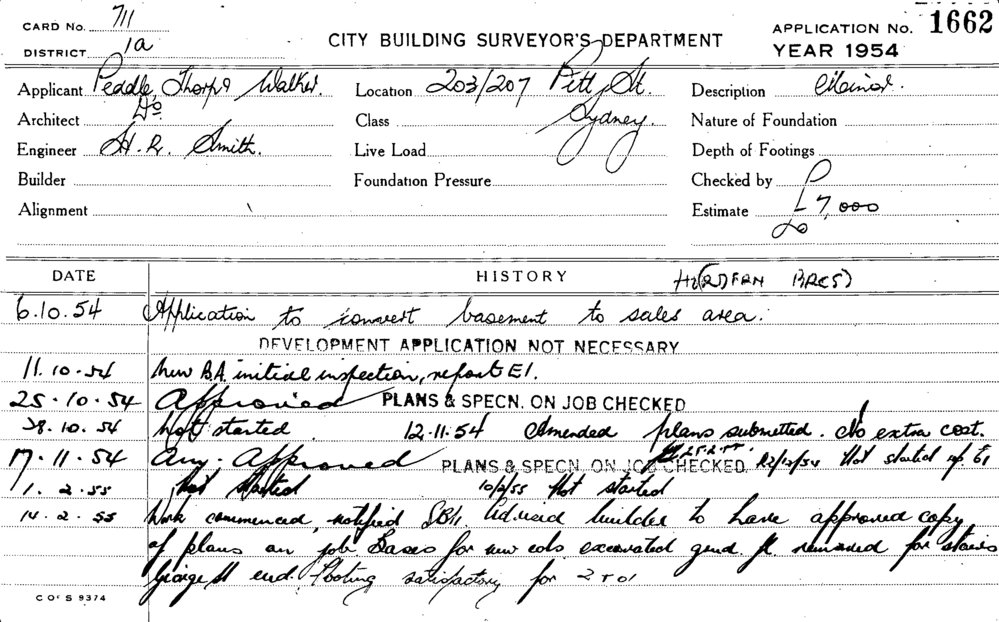 CARD No. 711
DISTRICT 1a
CITY BUILDING SURVEYOR'S DEPARTMENT
APPLICATION No. 1662
YEAR 1954
Applicant Peddle Thorp & Walker.
Location 203/207 Pitt St.
Description Minor.
Architect Do
Class Sydney.
Nature of Foundation
Engineer H. R. Smith.
Live Load
Depth of Footings
Builder
Foundation Pressure
Checked by
Alignment
Estimate £7,000
DATE HISTORY
6.10.54 Application to convert basement to sales area.
DEVELOPMENT APPLICATION NOT NECESSARY
11.10.54 New B.A. initial inspection, report E1.
25.10.54 Approved PLANS & SPECN. ON JOB CHECKED
28.10.54 Not started. 12.11.54 Amended plans submitted. No extra cost.
17.11.54 Approved PLANS & SPECN. ON JOB CHECKED. Not started
1.2.55 Not started 10/2/55 Not started
14.2.55 Work commenced, notified Advised builder to have approved copy
of plans on job. Bases for new cols excavated removed for stairs
George St end. Footing satisfactory for
C OF S 9374